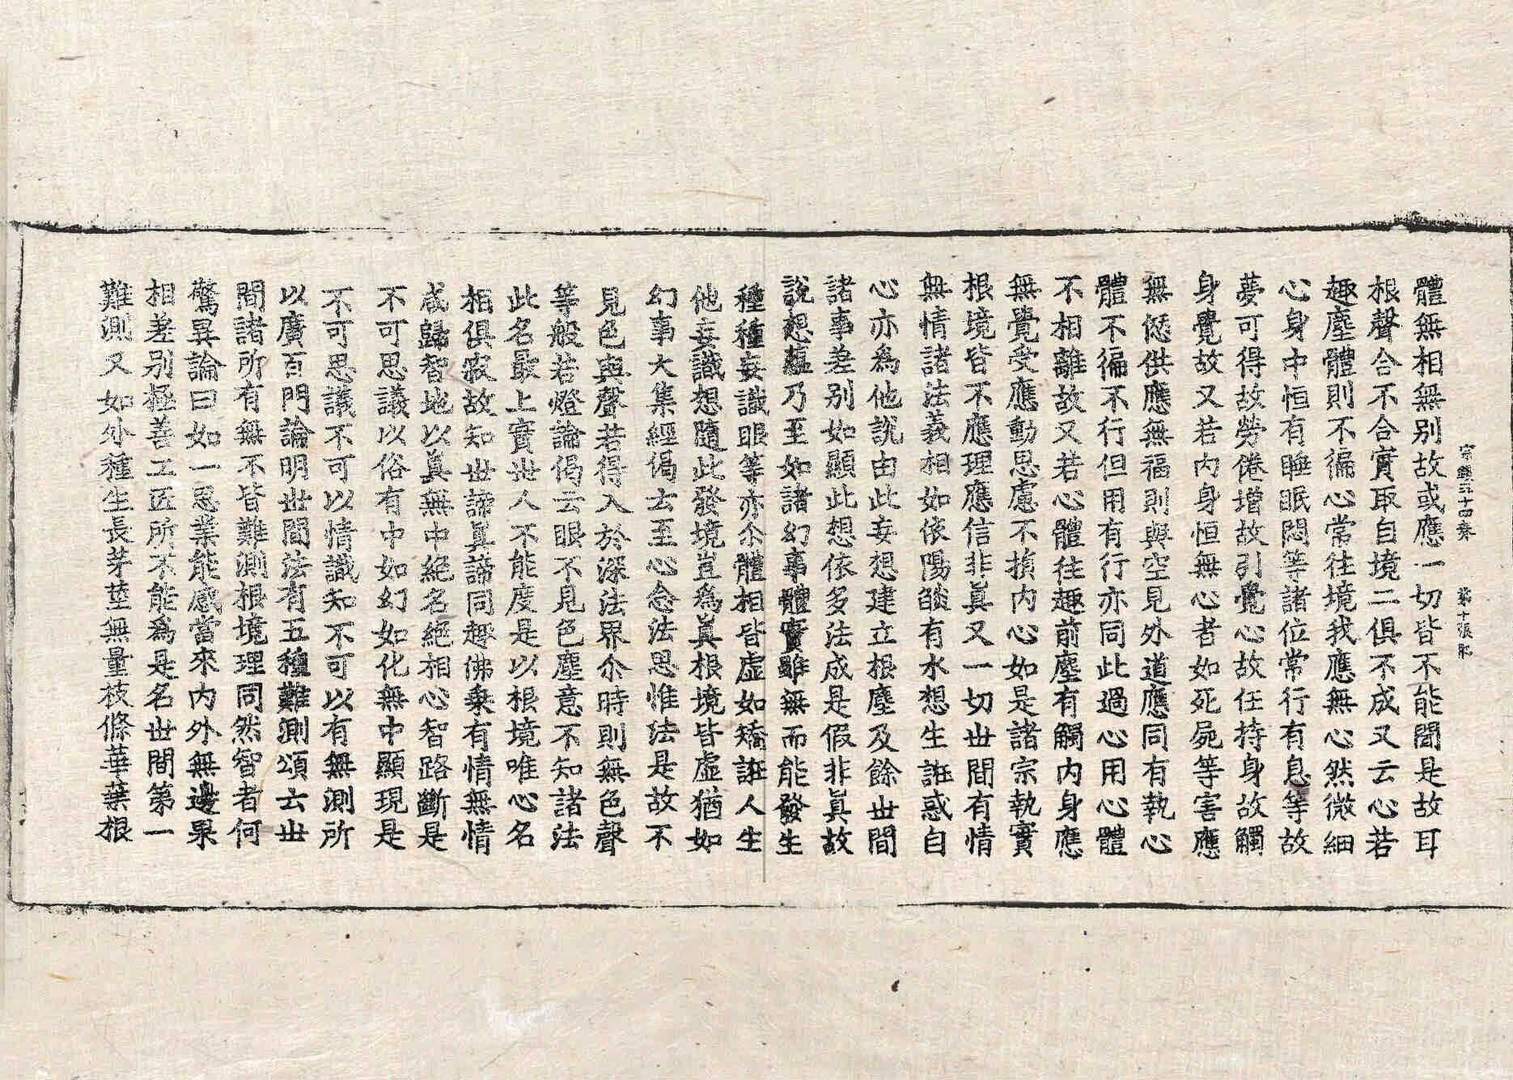 宗鏡六十四卷　第十張　肥
體無相無別故或應一切皆不能聞是故耳
根聲合不合實取自境二俱不成又云心若
趣塵體則不徧心常往境我應無心然微細
心身中恒有睡眠悶等諸位常行有息等故
夢可得故勞倦增故引覺心故任持身故觸
身覺故又若內身恒無心者如死屍等害應
無愆供應無福則與空見外道應同有執心
體不徧不行但用有行亦同此過心用心體
不相離故又若心體往趣前塵有觸內身應
無覺受應動思慮不損內心如是諸宗執實
根境皆不應理應信非眞又一切世間有情
無情諸法義相如依陽燄有水想生誑惑自
心亦為他說由此妄想建立根塵及餘世間
諸事差別如顯此想依多法成是假非眞故
說想蘊乃至如諸幻事體實雖無而能發生
種種妄識眼等亦尒體相皆虛如矯誑人生
他妄識想隨此發境豈為眞根境皆虛猶如
幻事大集經偈云至心念法思惟法是故不
見色與聲若得入於深法界尒時則無色聲
等般若燈論偈云眼不見色塵意不知諸法
此名最上實世人不能度是以根境唯心名
相俱寂故知世諦眞諦同趣佛乘有情無情
咸歸智地以眞無中絕名絕相心智路斷是
不可思議以俗有中如幻如化無中顯現是
不可思議不可以情識知不可以有無測所
以廣百門論明世間法有五種難測頌云世
間諸所有無不皆難測根境理同然智者何
驚異論曰如一思業能感當來內外無邊果
相差別極善工匠所不能為是名世間第一
難測又如外種生長芽莖無量枝條華葉根